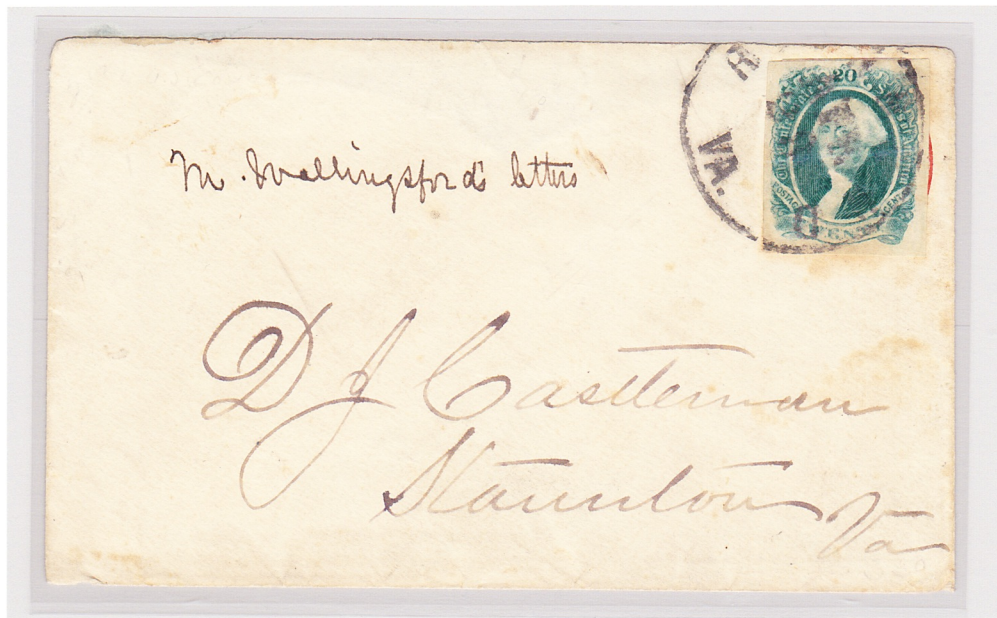 20
VA.
M. Wallingsford's letters
D J Castleman
Staunton
Va